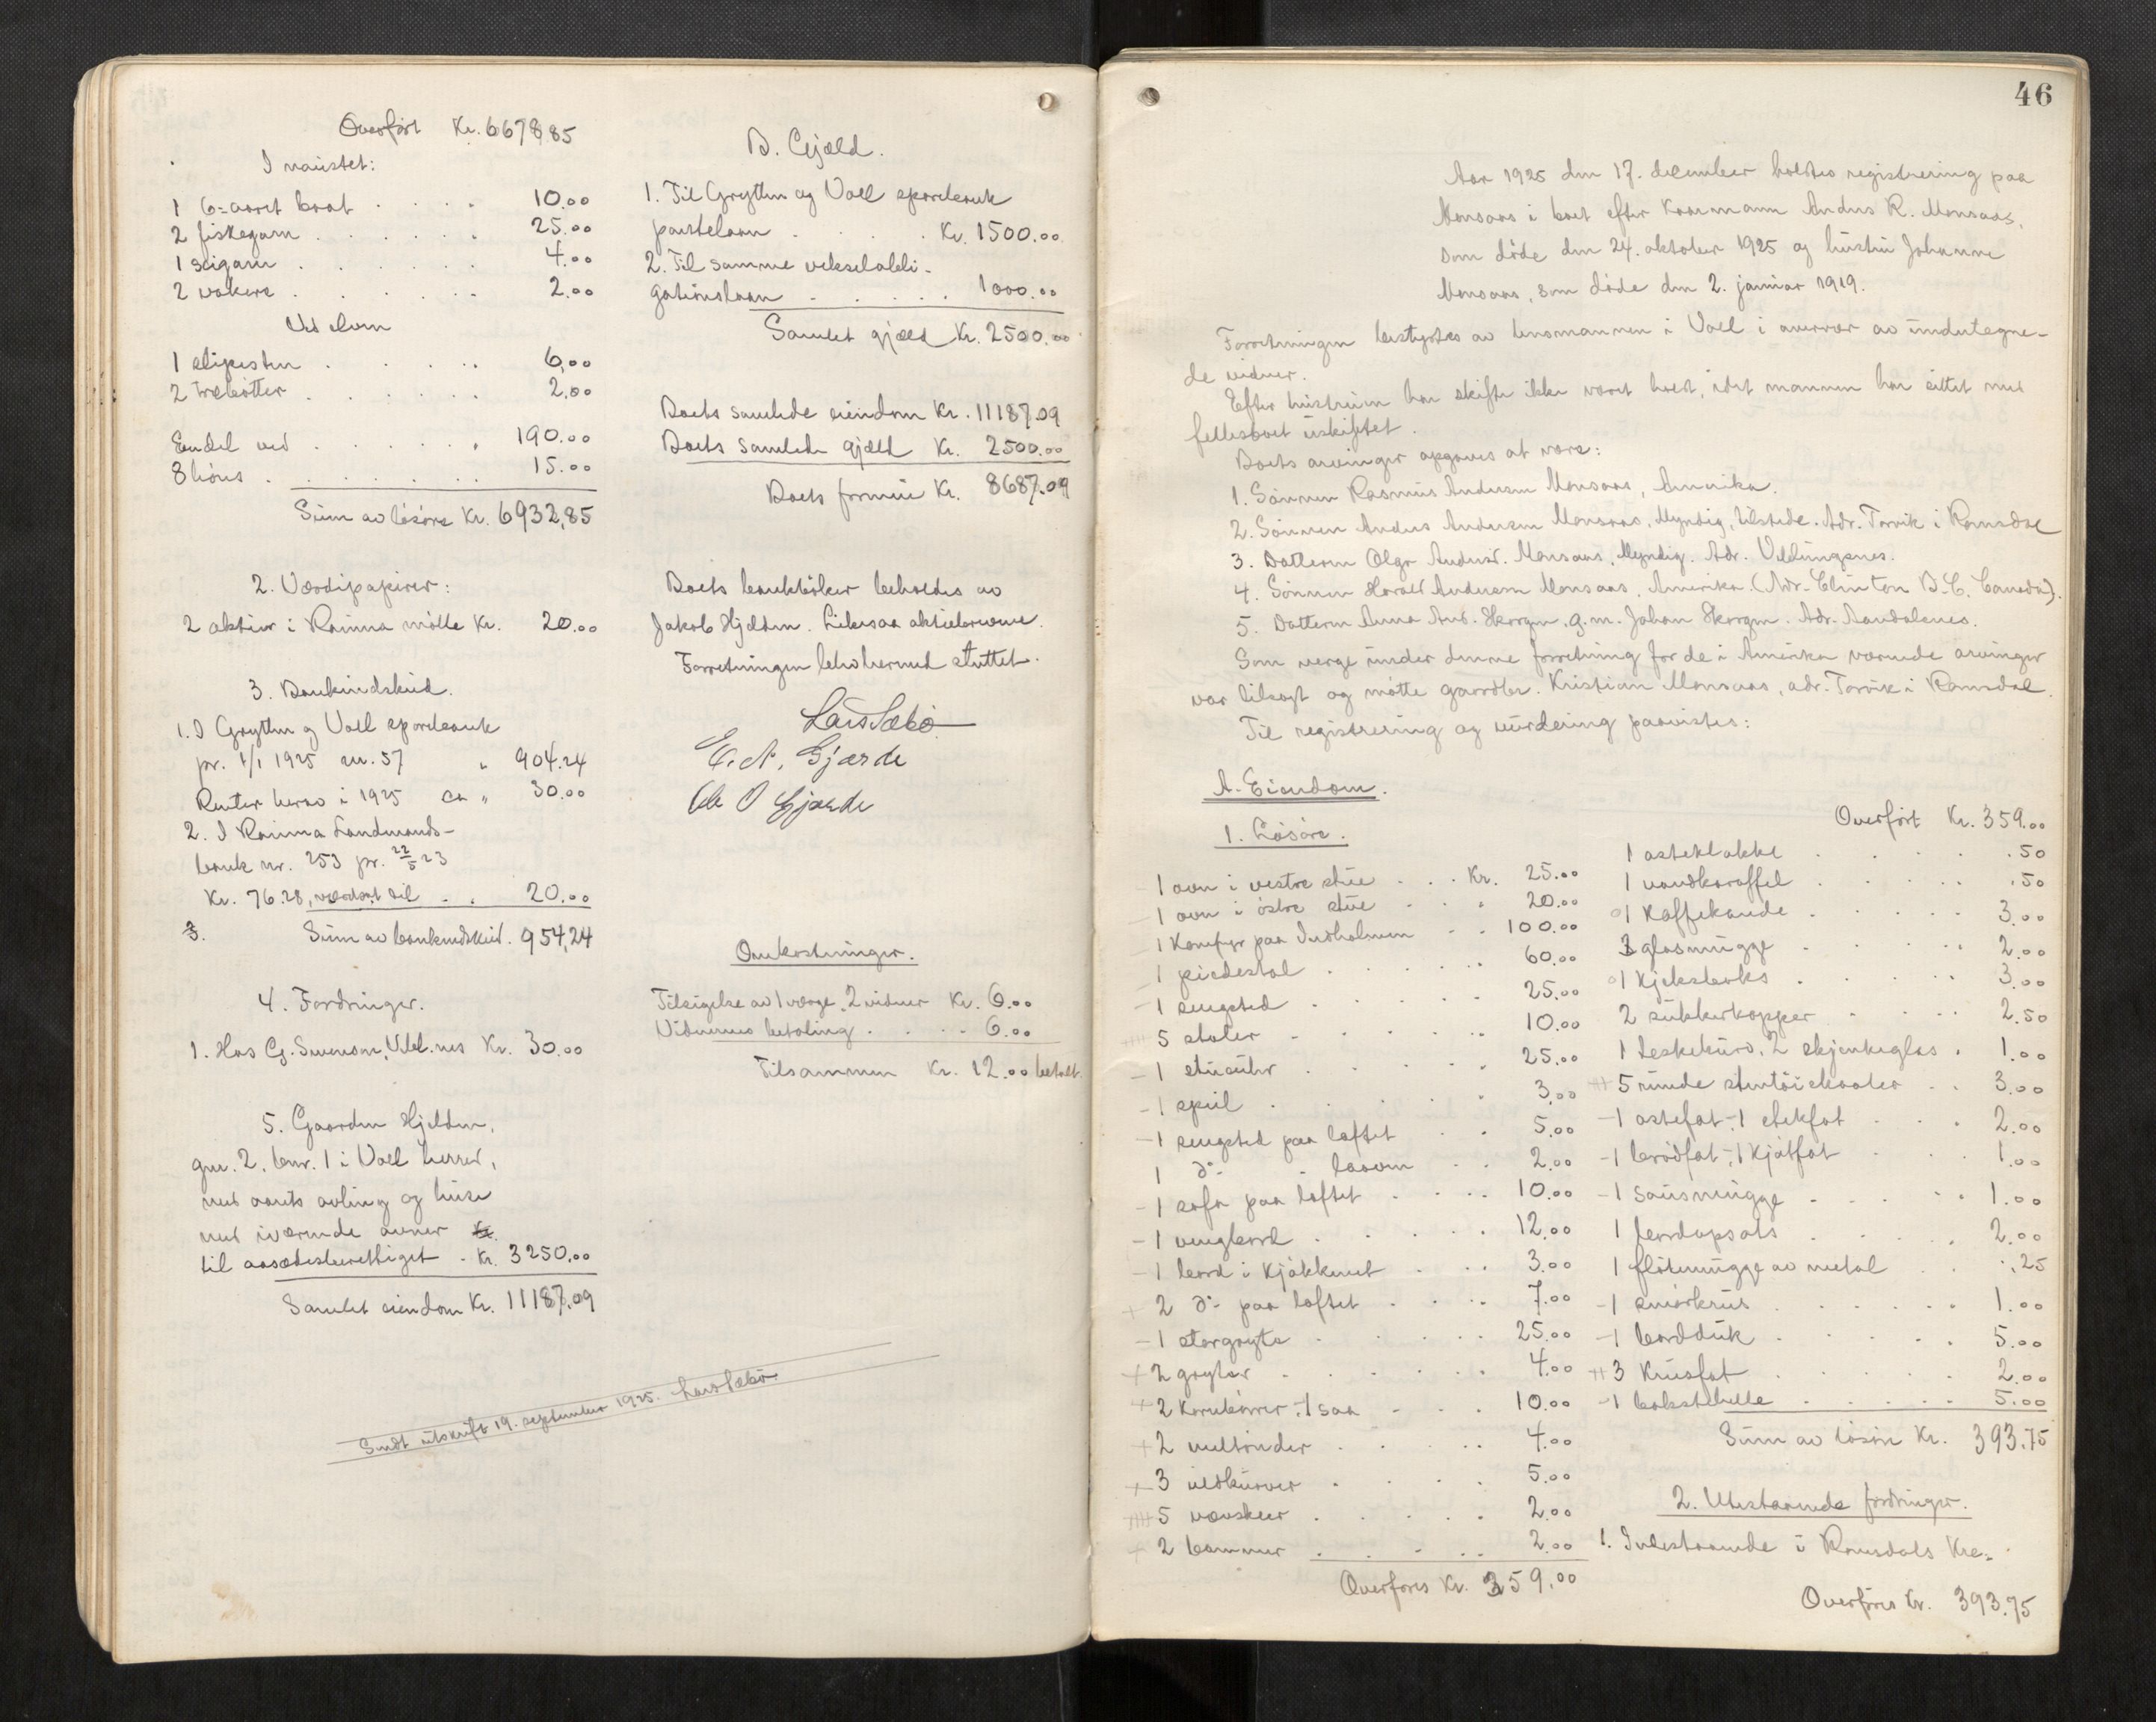 Overført Kr. 6678,85
I naustet:
1 6-aaret baat . . . . 10.00
2 fiskegarn . . . . . 25.00
1 seigarn . . . . . 4.00
2 vakere . . . . . 2.00
Ved elven
1 slipesten . . . . . 6,00
2 træbøtter . . . . . 2,00
Endel ved . . . . . . 190.00
8 høns . . . . . . . 15.00
Sum av løsøre Kr. 6932,85
2. Værdipapirer:
2 aktier i Rauma mølle Kr. 20.00
3. Bankindskud.
1. I Grytten og Voll sparebank
pr. 1/1 1925 nr. 57 " 904.24
Renter herav i 1925 ca " 30.00
2. I Rauma Landmands-
bank nr. 253 pr. 22/5 23
Kr. 76.28, værdsat til . . 20.00
3. Sum av bankindskud. 954,24
4. Fordringer.
1. Hos G. Svenson, Vebl.nes Kr. 30.00
5. Gaarden Hjelden,
gnr. 2, bnr. 1 i Voll herred,
med aarets avling og huse
med iværende ovner Kr.
til aasædesberettiget . Kr. 3250.00
Samlet eiendom Kr. 11187.09
Sendt utskrift 19. september 1925. Lars Sæbø
B. Gjæld.
1. Til Grytten og Voll sparebank
pantelaan . . . . Kr. 1500.00
2. Til samme vekselobli-
gationslaan . . . . . 1000.00
Samlet gjæld Kr. 2500.00
Boets samlede eiendom Kr. 11187.09
Boets samlede gjæld Kr. 2500.00
Boets formue Kr. 8687.09
Boets bankbøker beholdes av
Jakob Hjelden. Likesaa aktiebrevene.
Forretningen blev hermed sluttet.
Lars Sæbø
E. N. Gjærde
Ole O Gjærde
Omkostninger.
Tilsigelse av 1 værge, 2 vidner Kr. 6.00
Vidnernes betaling . . . . 6.00
Tilsammen Kr. 12.00 betalt.
46
Aar 1925 den 17. december holdtes registrering paa
Monsaas i boet efter kaarmann Anders R. Monsaas,
som døde den 24. oktober 1925 og hustru Johanne
Monsaas, som døde den 2. januar 1919.
Forretningen bestyrtes av lensmannen i Voll i overvær av undertegne-
de vidner.
Efter hustruen har skifte ikke været holdt, idet mannen har sittet med
fellesboet uskiftet.
Boets arvinger opgaves at være:
1. Sønnen Rasmus Andersen Monsaas, Amerika.
2. Sønnen Anders Andersen Monsaas, Myndig, tilstede. Adr. Torvik i Romsdal
3. Datteren Olga Andersd. Monsaas, Myndig. Adr. Veblungsnes.
4. Sønnen Harald Andersen Monsaas, Amerika. (Adr. Clinton B.C. Canada).
5. Datteren Anna And. Skorgen, g.m. Johan Skorgen. Adr. Aandalsnes.
Som verge under denne forretning for de i Amerika værende arvinger
var tilsagt og møtte gaardbr. Kristian Monsaas, adr. Torvik i Romsdal.
Til registrering og vurdering paavistes:
A. Eiendom.
1. Løsøre.
1 ovn i vestre stue . . . Kr. 25.00
1 ovn i østre stue . . . 20.00
1 Komfyr paa Indholmen . . 100.00
1 piedestal . . . . . 60.00
1 sengsted . . . . . 25.00
5 stoler . . . . . 10.00
1 stueuhr . . . . . 25.00
1 speil . . . . . 3,00
1 sengsted paa loftet . . 5.00
1 do - laaven . . 2.00
1 sofa paa loftet . . . . 10.00
1 vengbord . . . . . 12,00
1 bord i kjøkkenet . . . 3.00
2 do paa loftet . . . . 7.00
1 storgryte . . . . . 25.00
2 gryter . . . . . 4.00
2 Kornbører, 1 saa . . . 10.00
2 meltønder . . . . . 4.00
3 vedkurver . . . . 5.00
5 vævskeer . . . . . 2.00
2 bommer . . . . . 2.00
Overføres Kr. 359.00
Overført Kr. 359.00
1 osteklokke . . . . .50
1 vandkaraffel . . . . .50
1 Kaffekande . . . . . 3.00
3 glasmugge . . . . . 2.00
1 Kjeksboks . . . . . 3.00
2 sukkerkopper . . . . 2.50
1 beskeburo, 2 skjenkeglas . 1.00
5 runde stentøi . . 3.00
1 ostefat, 1 stekfat . . . 2.00
1 brødfat, 1 Kjøtfat . . . 1.00
1 sausmugge . . . . . 1.00
1 bordopsats . . . . . 2.00
1 fløtemugge av metal . . .25
1 smørkrus . . . . . 1.00
1 bordduk . . . . . 5.00
3 Krusfat . . . . . 2.00
1 bakstehelle . . . . . 5.00
Sum av løsøre Kr. 393.75
2. Utestaaende fordringer.
1. Indestaaende i Romsdals Kre-
Overføres Kr. 393.75